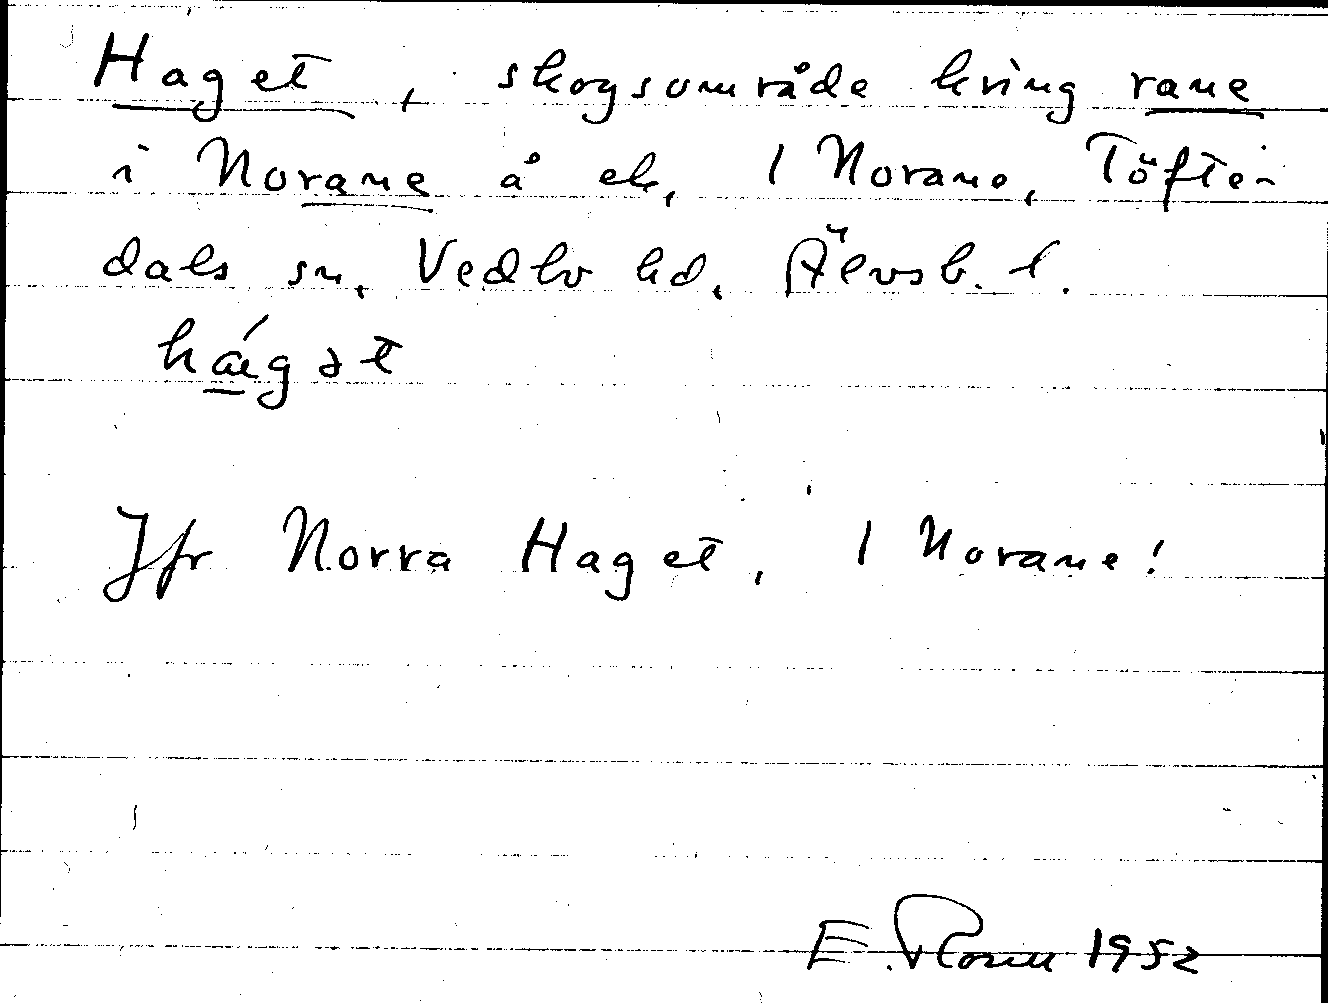 Haget, skogsområde kring rane
i Norane å ek. 1 Norane, Töftedals sn, Vedbo hd, Älvsb. l.
hágət
Jfr Norra Haget, 1 Norane!
E. 1952